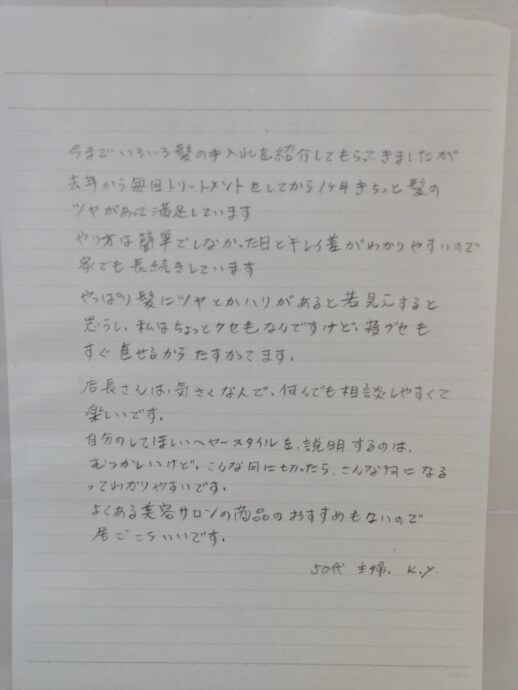 今までいろいろ髪の手入れを紹介してもらってきましたが
去年から毎回トリートメントをしてから1ヶ月きちっと髪の
ツヤがあって満足しています
やり方は簡単でしなかった日とキレイ差がわかりやすいので
家でも長続きしています
やっぱり髪にツヤとかハリがあると若見えすると
思うし、私はちょっとクセもなんですけど、寝グセも
すぐ直せるからたすかってます。
店長さんは、気さくな人で、何んでも相談しやすくて
楽しいです。
自分のしてほしいヘヤースタイルを、説明するのは、
むつかしいけど、こんな向に切ったら、こんな向になる
ってわかりやすいです。
よくある美容サロンの商品のおすすめもないので
居ごこちいいです。
50代 主婦、K.Y.